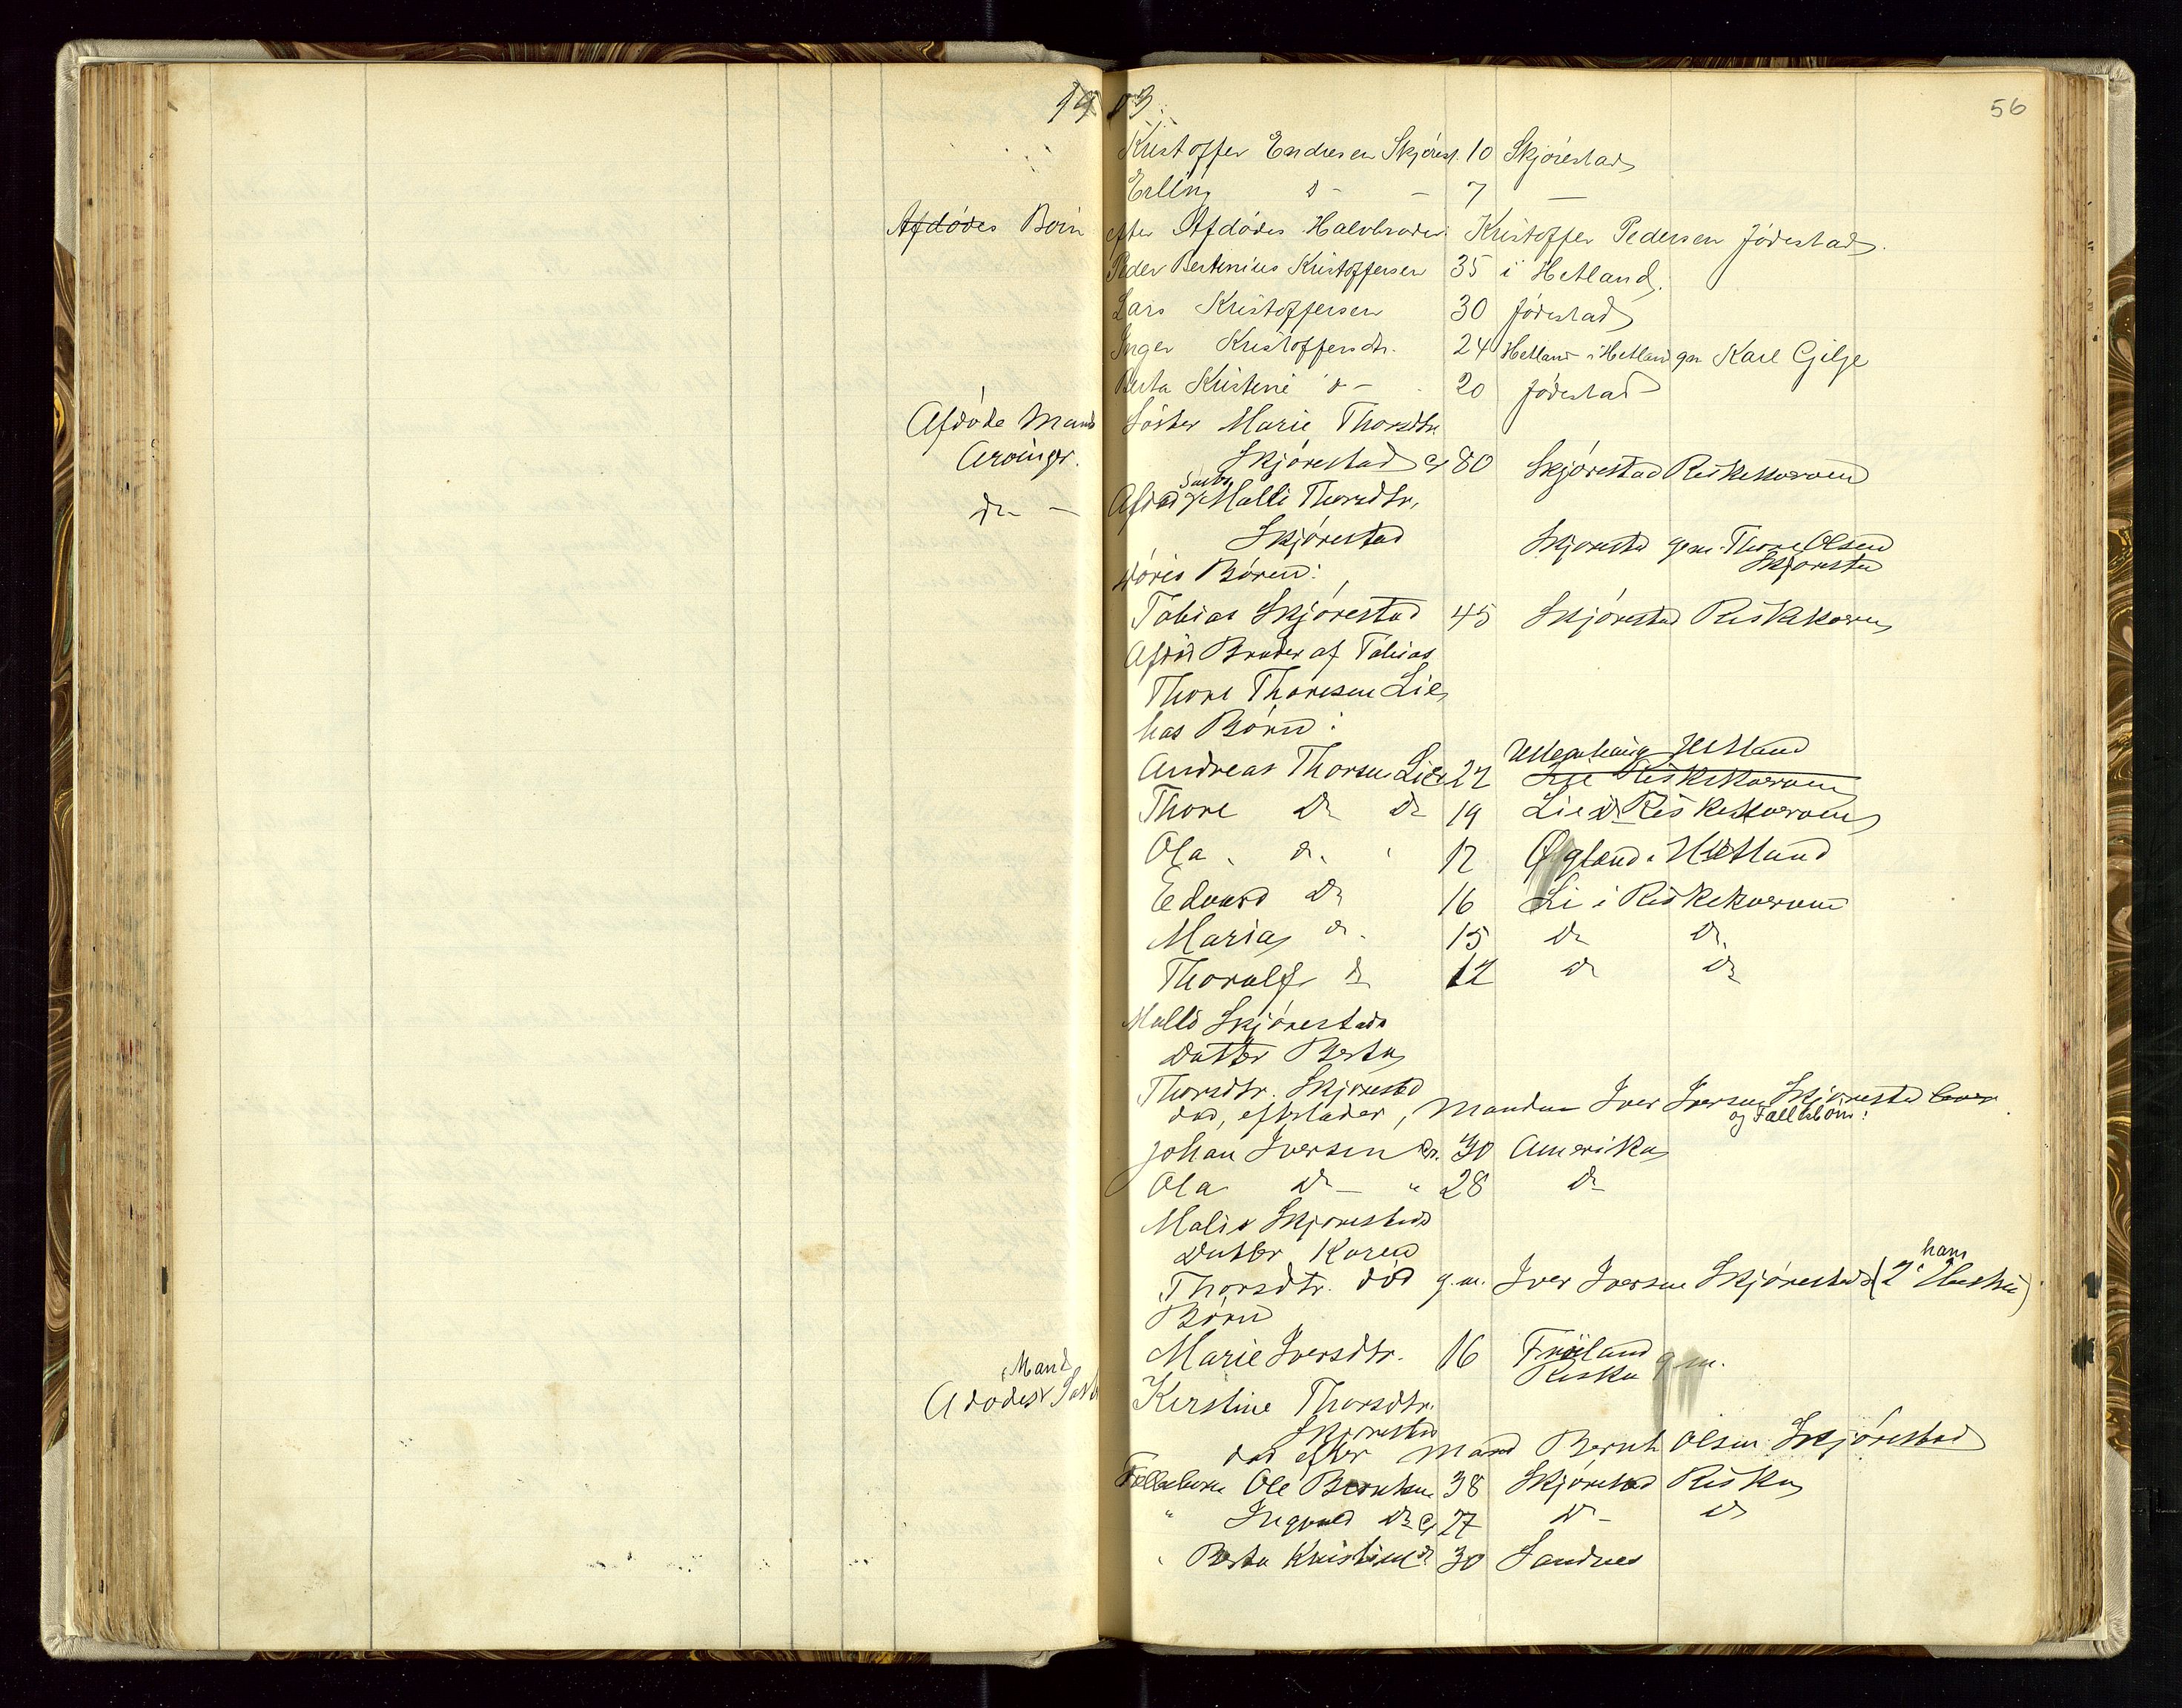 1903
56
Kristoffer Endresen Skjörest. 10 Skjörestad
Erling d - - 7 —
Afdödes Börn efter Afdödes Halvbroder Kristoffer Pedersen Jödestad.
Peder Bertinius Kristoffersen 35 i Hetland.
Lars Kristoffersen 30 Jödestad
Inger Kristoffersdtr. 24 Hetland i Hetland gm Karl Gilje
Berta Kristine d - 20 Jödestad
Afdöde Mands Söster Marie Thorsdtr
Arvinger. Skjörestad 80 Skjörestad Riskekværven
do — Afdöd Söster Malli Thorsdtr.
Skjörestad Skjörestad gm. Thore Olsen
Skjörestad
döres Börn:
Tobias Skjörestad 45 Skjörestad Riskekværv
Afdöd Broder af Tobias
Thore Thoresen Lie
has Börn:
Hetland
Andreas Thorsen Lie 22 Lie Riskekværven
Thore do do 19 Lie i Riskekværven
Ola do " 17 Øgland i Hetland
Edvard do 16 Li i Riskekværven
Maria do 15 do do
Thoralf do 12 do do
Malli Skjörestads
datter Berta
Thorsdtr. Skjörestad
död, efterlader, Manden Iver Iversen Skjörestad lever
og Fællesbörn:
Johan Iversen do. 30 Amerika
Ola do — " 28 do
Malis Skjörestads
datter Karen
hans
Thorsdtr. död g.m. Iver Iversen Skjörestad (2. Hustru)
Börn
Marie Iversdtr. 16 Fröiland g.m.
Riska
Mand
Kirstine Thorsdtr.
Skjörestad
död efter Mand Bernt Olsen Skjörestad
Fællesbörn Ole Berntsen 38 Skjörestad Riska
" Ingvald do 27 do do
" Berta Kristine do 30 Sandnes